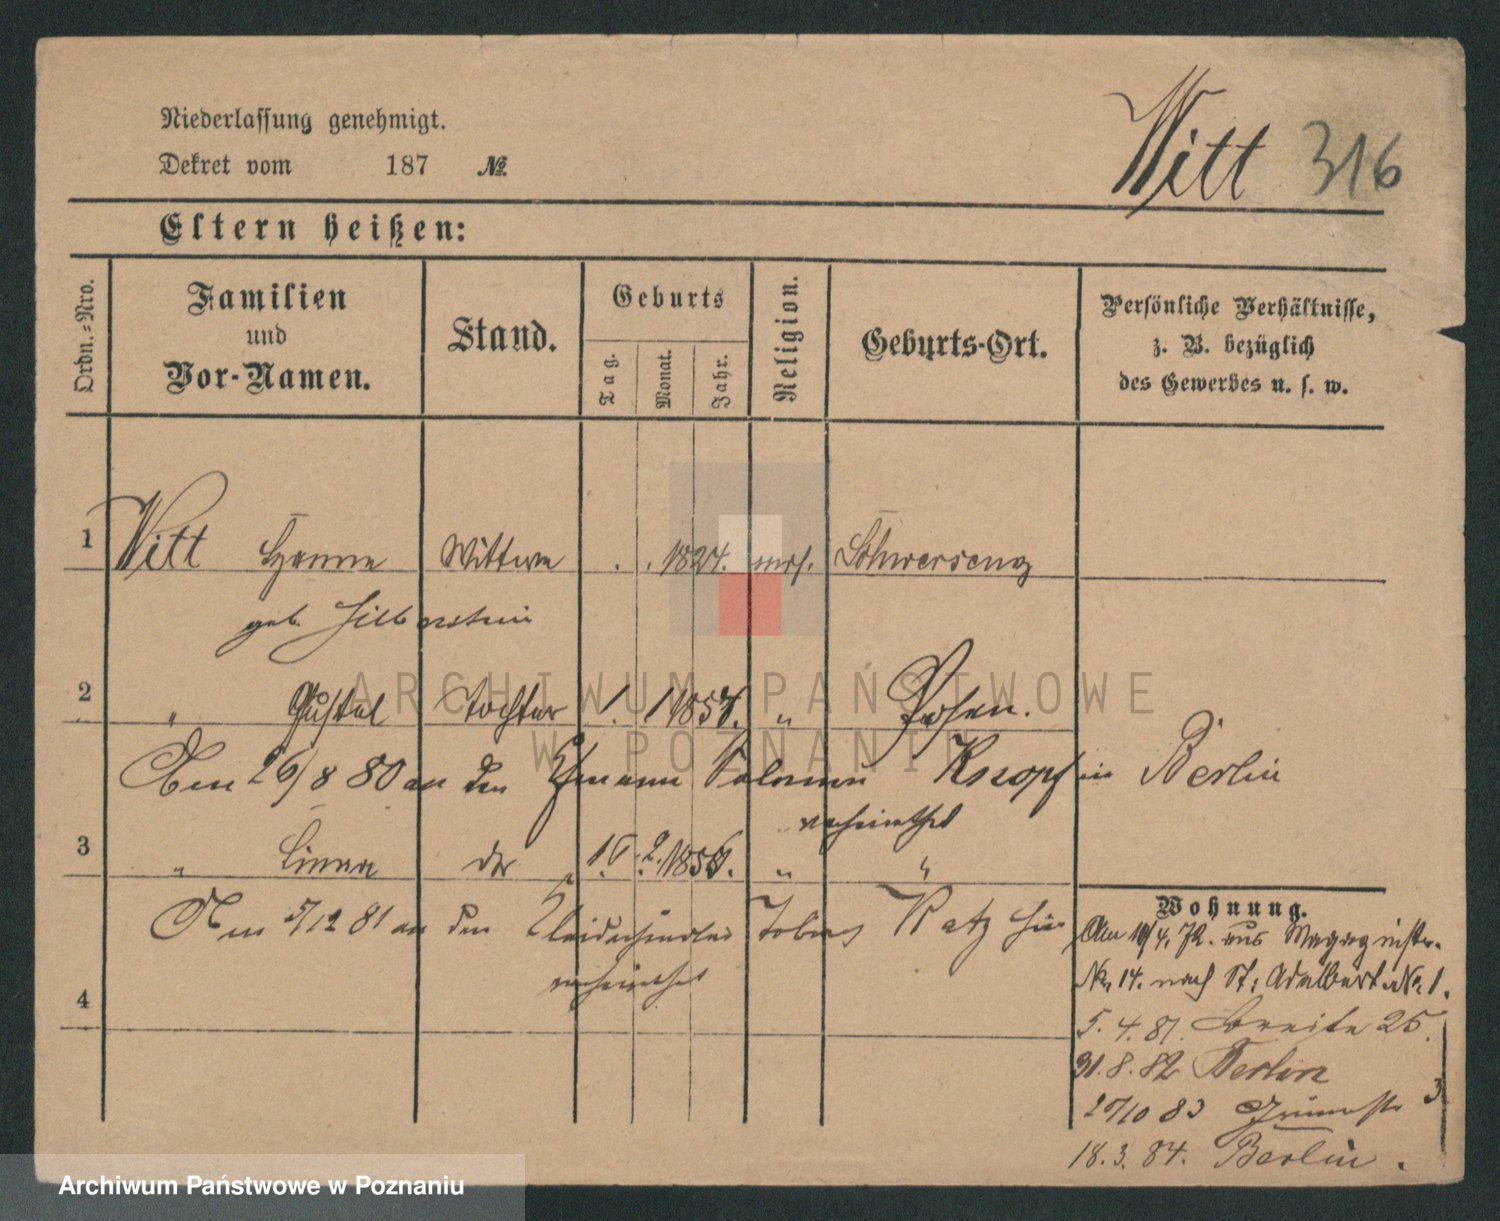 Niederlassung genehmigt.
Dekret vom 187 №
Witt 316
Eltern heißen:
Ordn.-Nro.
Familien
und
Vor-Namen.
Stand.
Geburts
Tag.
Monat.
Jahr.
Religion.
Geburts-Ort.
Persönliche Verhältnisse,
z. B. bezüglich
des Gewerbes u. s. w.
1 Witt Hanne Wittwe . . 1824. mos. Schwersenz
geb. Silberstein
2 " Gustel Tochter 1. 1 1854. " Posen.
Am 26/8 80 an den Ehemann Salomon Knopf in Berlin
verheirathet
3 " Linna do 16. 2. 1856. " "
Am 5/12 81 an den Kleiderhändler Tobias Katz hier
verheirathet
4
Wohnung.
Am 19/4. 72. aus Magazinstr.
No 14. nach St. Adalbert No 1.
5. 4. 81. Breite 25.
31. 8. 82 Berlin
27/10 83 3
18. 3. 84. Berlin.
ARCHIWUM PAŃSTWOWE
W POZNANIU
Archiwum Państwowe w Poznaniu